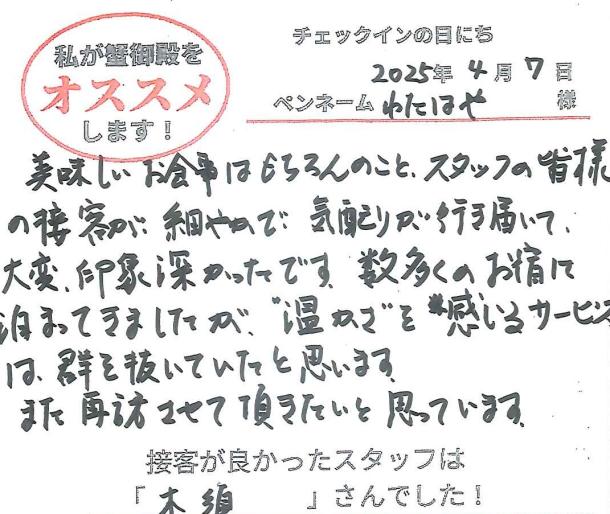 私が蟹御殿を
オススメ
します！
チェックインの日にち
2025年 4月 7日
ペンネーム わたはや 様
美味しいお食事はもちろんのこと、スタッフの皆様
の接客が細やかで気配りが行き届いて、
大変、印象深かったです。数多くのお宿に
泊まってきましたが、"温かさ"を感じるサービス
は、群を抜いていたと思います。
また再訪させて頂きたいと思っています。
接客が良かったスタッフは
「木須」さんでした！